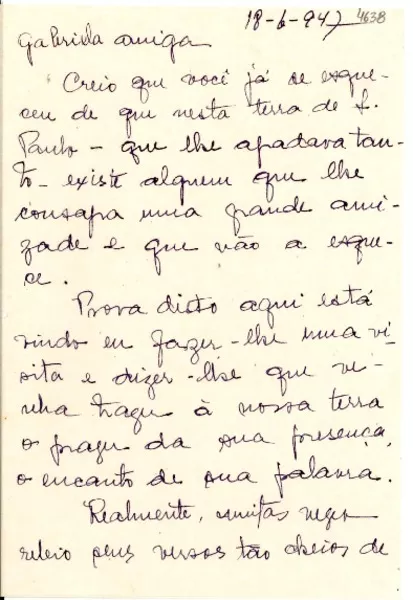 18-6-947 4638
Gabriela amiga
Creio que você já se esque-
ceu de que nesta terra de S.
Paulo - que lhe agradava tan-
to - existe alguem que lhe
consagra uma grande ami-
zade e que não a esque-
ce.
Prova disto aqui está
vindo eu fazer-lhe uma vi-
sita e dizer-lhe que ve-
nha trazer à nossa terra
o prazer da sua presença,
o encanto de sua palavra.
Realmente, muitas vezes
releio seus versos tão cheios de